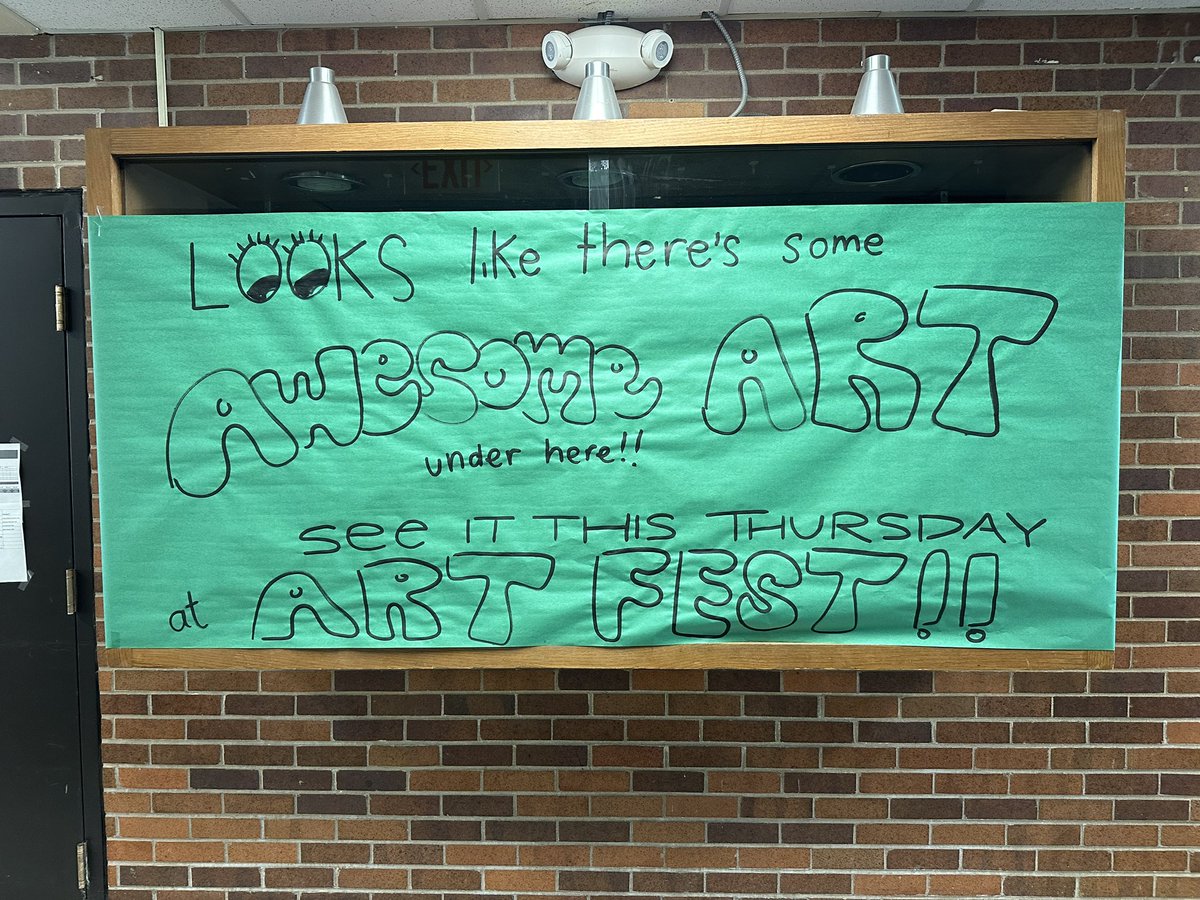 EXIT
LOOKS like there's some
AWESOME ART
under here!!
see IT THIS THURSDAY
at ART FEST!!